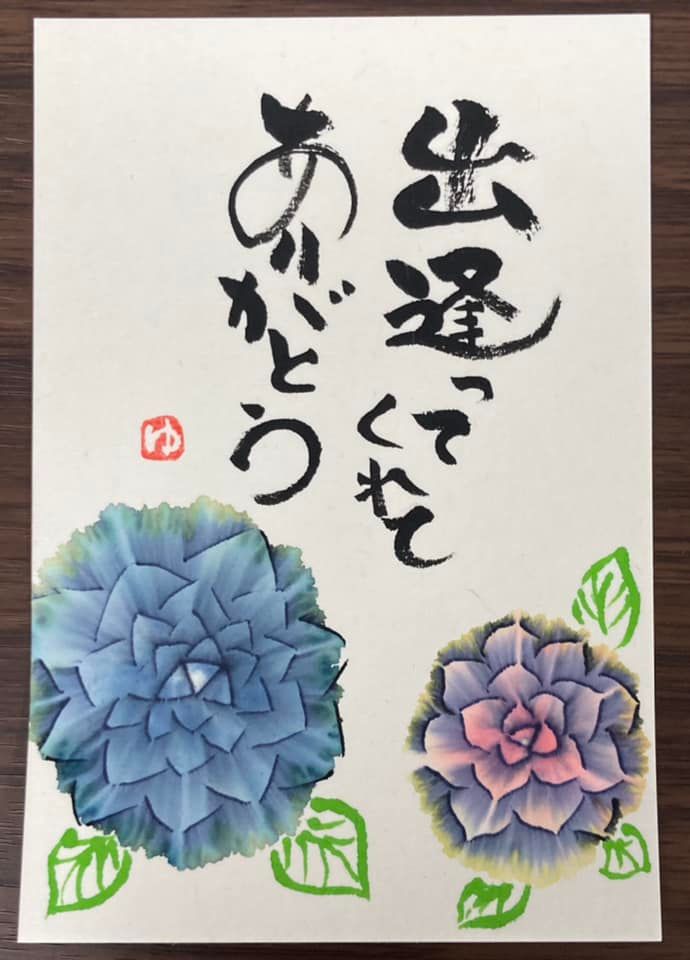 出逢って
くれて
ありがとう
ゆ